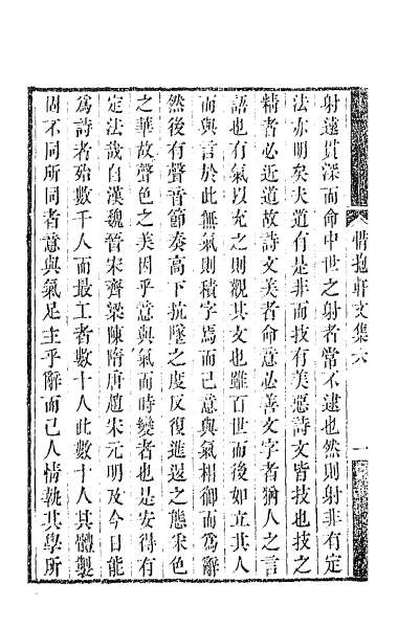 射遠貫深而命中世之射者常不逮也然則射非有定
法亦明矣夫道有是非而技有美惡詩文皆技也技之
精者必近道故詩文美者命意必善文字者猶人之言
語也有氣以充之則觀其文也雖百世而後如立其人
而與言於此無氣則積字焉而已意與氣相御而為辭
然後有聲音節奏高下抗墜之度反復進退之態采色
之華故聲色之美因乎意與氣而時變者也是安得有
定法哉自漢魏晉宋齊梁陳隋唐趙宋元明及今日能
為詩者殆數千人而最工者數十人此數十人其體製
固不同所同者意與氣足主乎辭而已人情執其學所
惜抱軒文集六
一